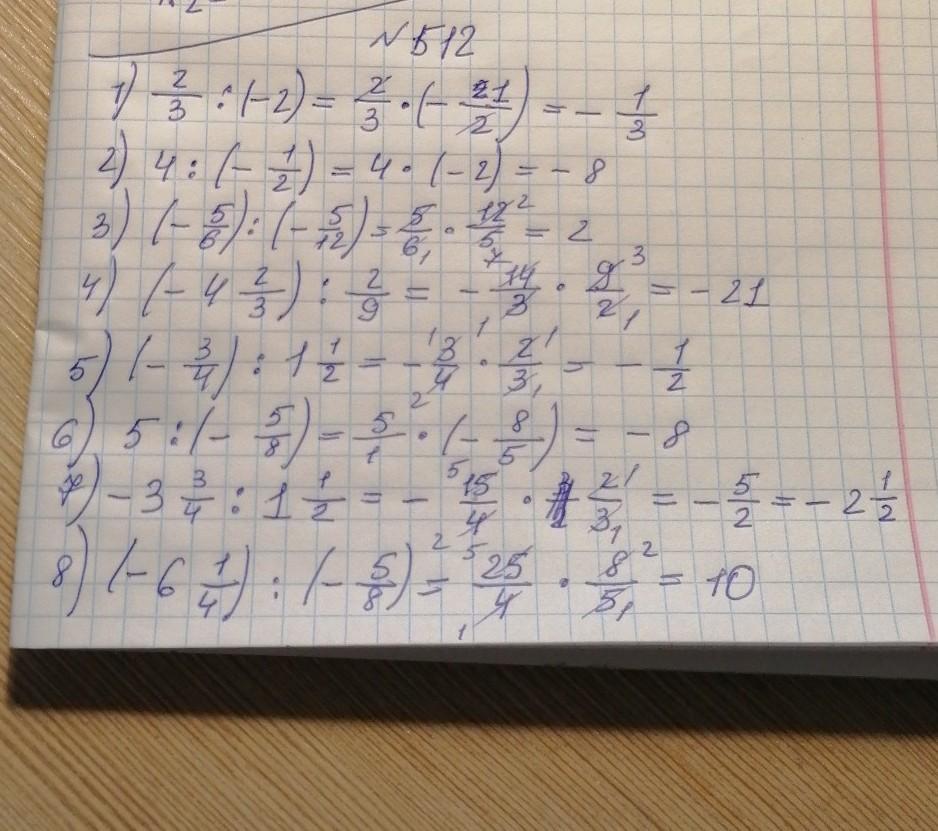 №512
1) 2/3 : (-2) = 2/3 · (- 21/2) = - 1/3
2) 4 : (- 1/2) = 4 · (-2) = - 8
3) (- 5/6) : (- 5/12) = 5/6 1 · 12/5 2 = 2
4) (- 4 2/3) : 2/9 = - 7 14/3 · 9/2 3 1 = - 21
5) (- 3/4) : 1 1/2 = - 1 3/4 1 2 · 2/3 1 1 = - 1/2
6) 5 : (- 5/8) = 5/1 · (- 8/5) = - 8
7) - 3 3/4 : 1 1/2 = - 5 15/4 2 · 2/3 1 1 = - 5/2 = - 2 1/2
8) (- 6 1/4) : (- 5/8) = 5 25/4 1 · 8/5 2 1 = 10